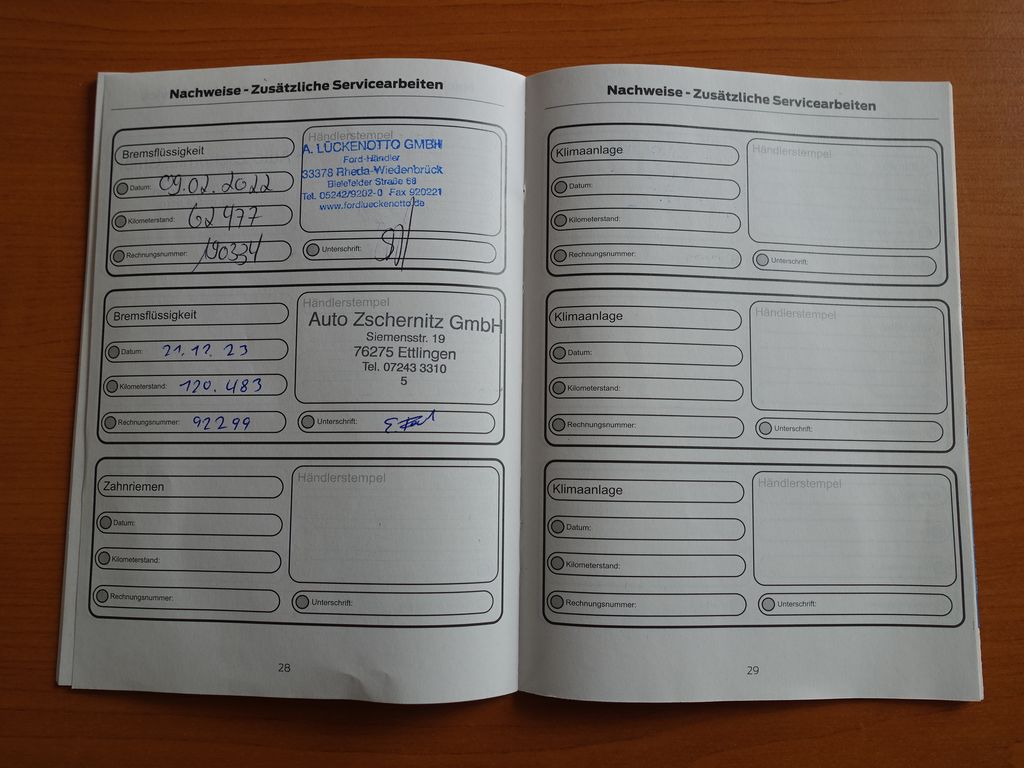 Nachweise - Zusätzliche Servicearbeiten
Bremsflüssigkeit
Datum: 09.02.2022
Kilometerstand: 62477
Rechnungsnummer: 190334
Händlerstempel
A. LÜCKENOTTO GMBH
Ford-Händler
33378 Rheda-Wiedenbrück
Bielefelder Straße 68
Tel. 05242/9202-0 Fax 920221
www.fordlueckenotto.de
Unterschrift:
Bremsflüssigkeit
Datum: 21.12.23
Kilometerstand: 120.483
Rechnungsnummer: 92299
Händlerstempel
Auto Zschernitz GmbH
Siemensstr. 19
76275 Ettlingen
Tel. 07243 3310
5
Unterschrift:
Zahnriemen
Datum:
Kilometerstand:
Rechnungsnummer:
Händlerstempel
Unterschrift:
28
Nachweise - Zusätzliche Servicearbeiten
Klimaanlage
Datum:
Kilometerstand:
Rechnungsnummer:
Händlerstempel
Unterschrift:
Klimaanlage
Datum:
Kilometerstand:
Rechnungsnummer:
Händlerstempel
Unterschrift:
Klimaanlage
Datum:
Kilometerstand:
Rechnungsnummer:
Händlerstempel
Unterschrift:
29